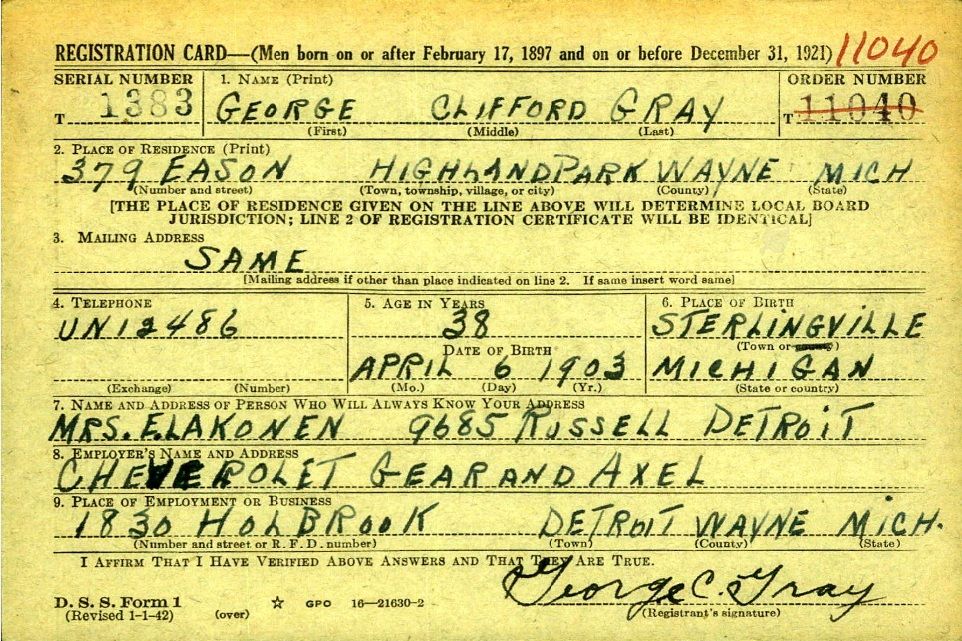 REGISTRATION CARD—(Men born on or after February 17, 1897 and on or before December 31, 1921) 11040
SERIAL NUMBER 1. NAME (Print) ORDER NUMBER
T 1383 GEORGE CLIFFORD GRAY T 11040
(First) (Middle) (Last)
2. PLACE OF RESIDENCE (Print)
379 EASON HIGHLAND PARK WAYNE MICH
(Number and street) (Town, township, village, or city) (County) (State)
[THE PLACE OF RESIDENCE GIVEN ON THE LINE ABOVE WILL DETERMINE LOCAL BOARD
JURISDICTION; LINE 2 OF REGISTRATION CERTIFICATE WILL BE IDENTICAL]
3. MAILING ADDRESS
SAME
[Mailing address if other than place indicated on line 2. If same insert word same]
4. TELEPHONE 5. AGE IN YEARS 6. PLACE OF BIRTH
UN12486 38 STERLINGVILLE
DATE OF BIRTH (Town or county)
APRIL 6 1903 MICHIGAN
(Exchange) (Number) (Mo.) (Day) (Yr.) (State or country)
7. NAME AND ADDRESS OF PERSON WHO WILL ALWAYS KNOW YOUR ADDRESS
MRS. E. LAKONEN 9685 RUSSELL DETROIT
8. EMPLOYER'S NAME AND ADDRESS
CHEVEROLET GEAR AND AXEL
9. PLACE OF EMPLOYMENT OR BUSINESS
1830 HOLBROOK DETROIT WAYNE MICH.
(Number and street or R. F. D. number) (Town) (County) (State)
I AFFIRM THAT I HAVE VERIFIED ABOVE ANSWERS AND THAT THEY ARE TRUE.
George C. Gray
D. S. S. Form 1
(Revised 1-1-42) (over) ☆ GPO 16—21630-2 (Registrant's signature)